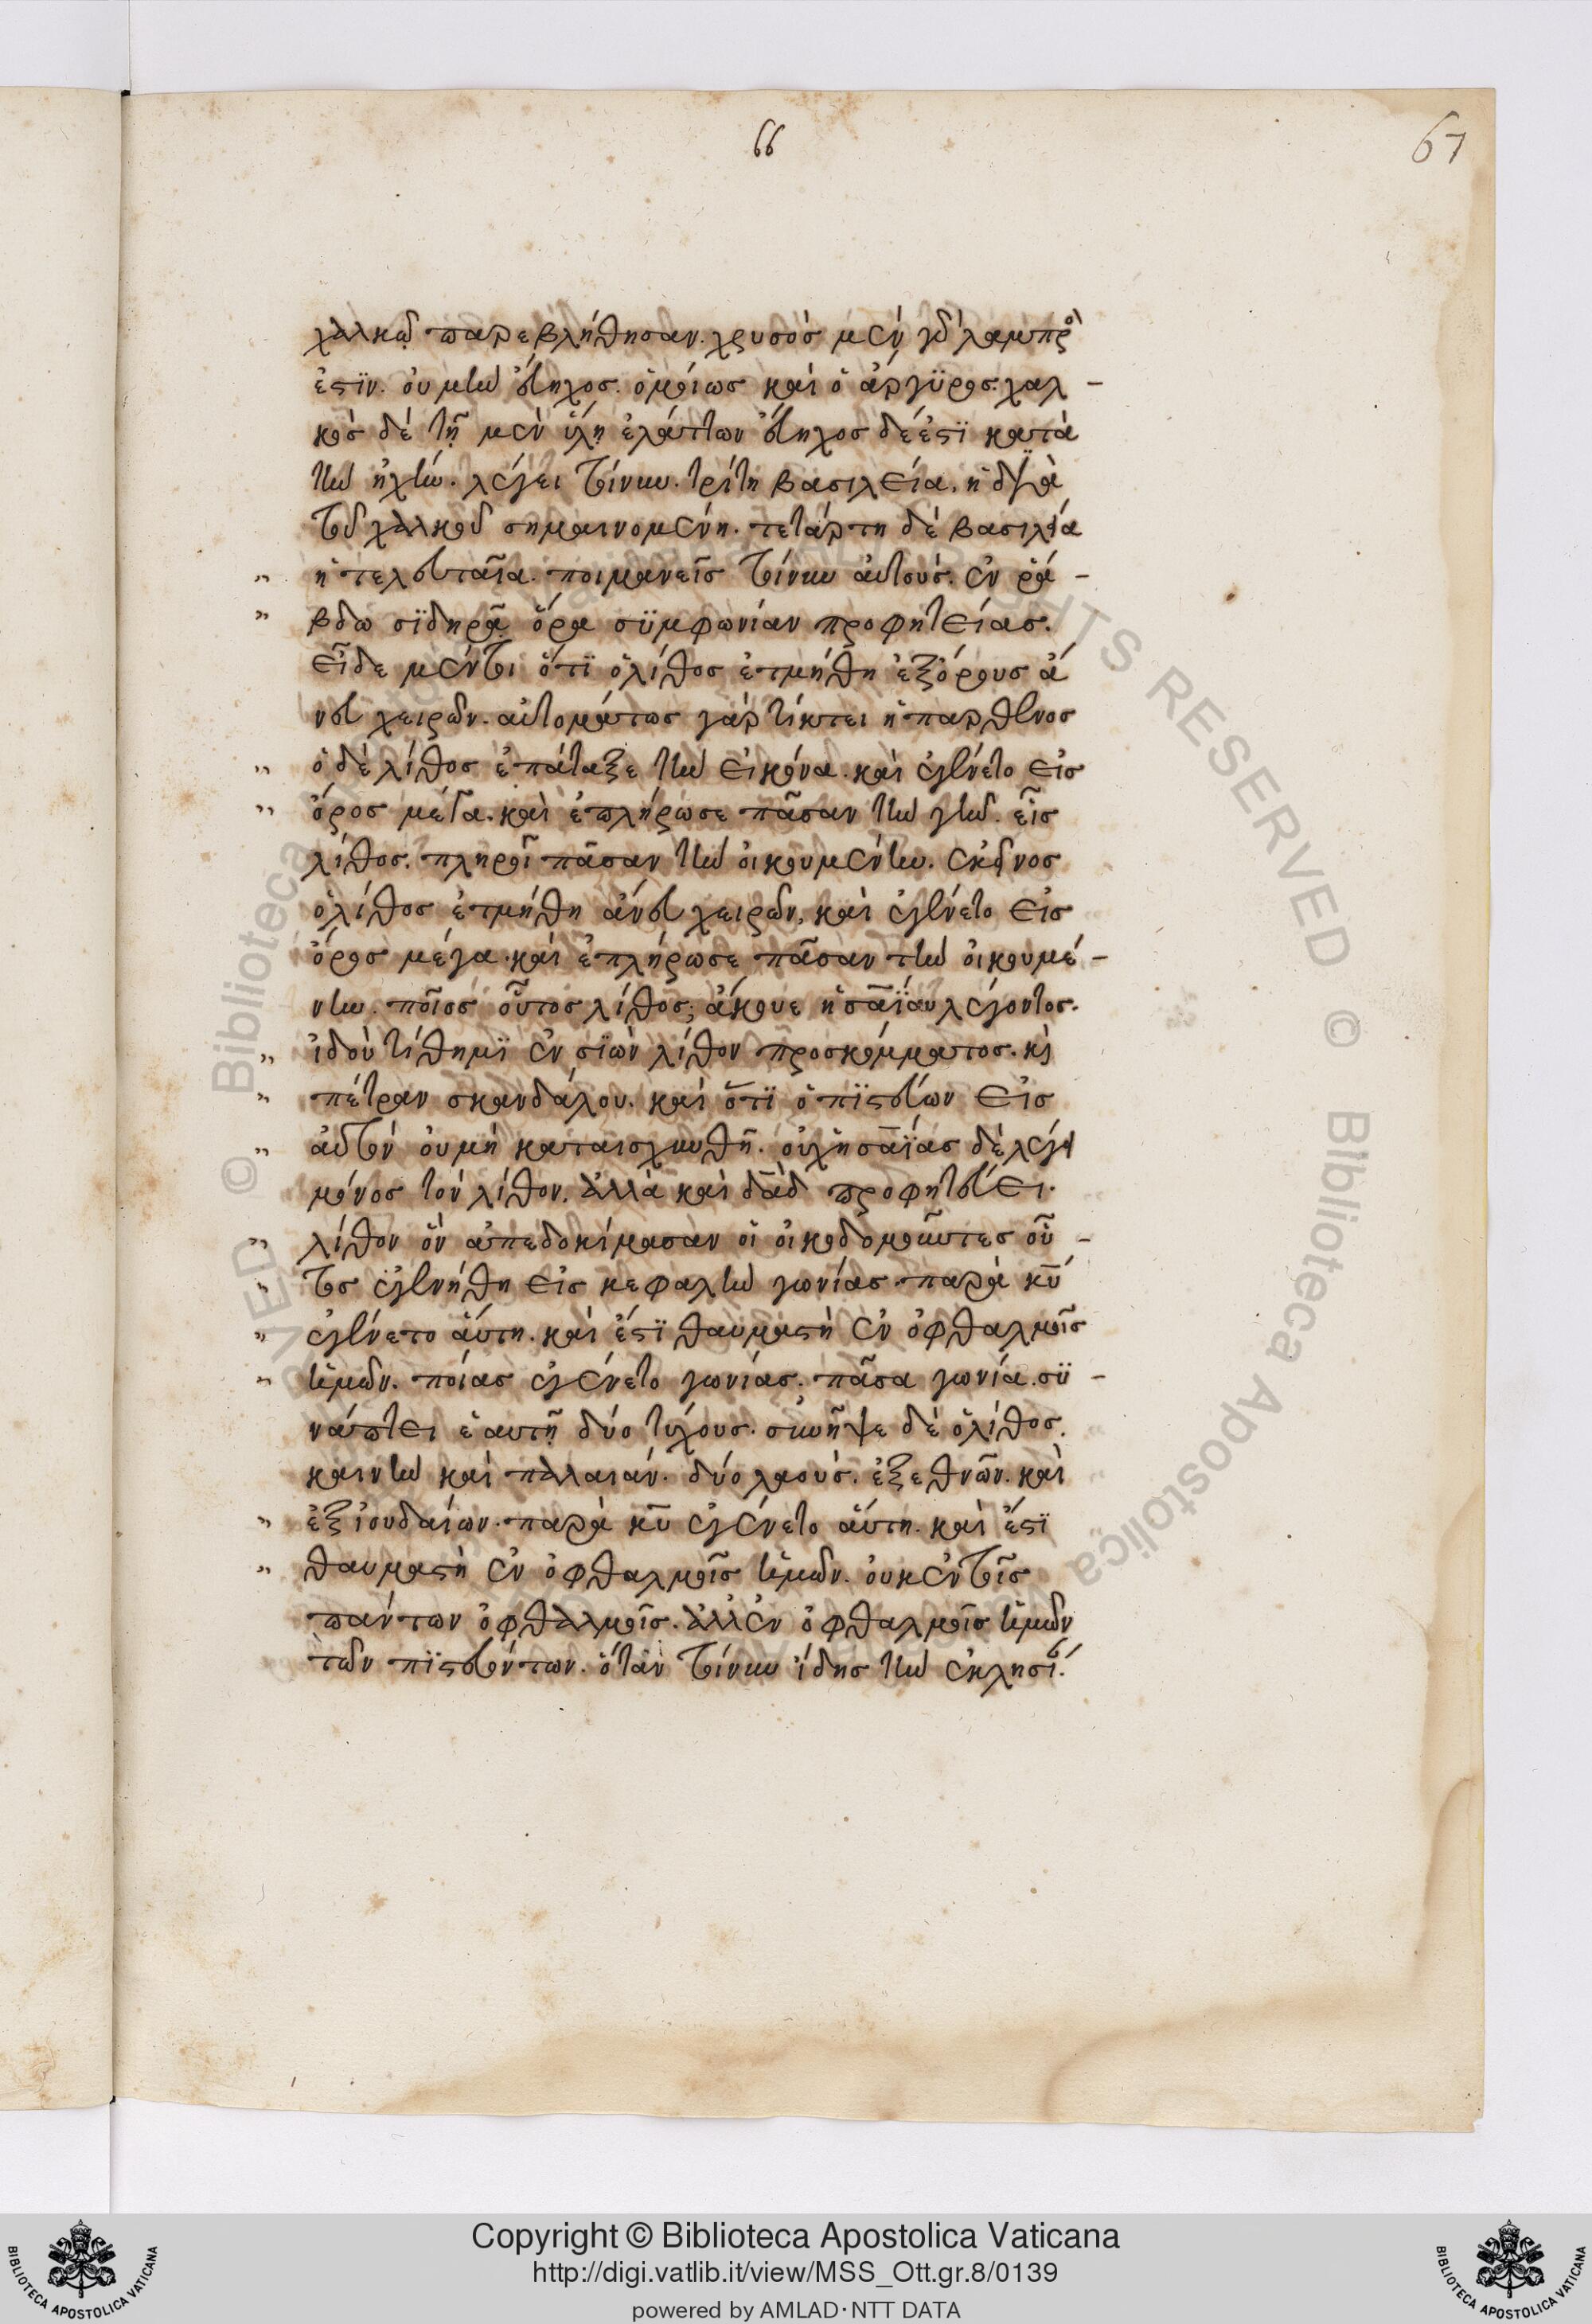 66
67
χαλκῷ παρεβλήθησαν. χρυσὸσ μὲν γὰρ λαμπρὸ
ἐστϊν. οὐ μὴν εὔηχοσ. ὁμοίωσ καὶ ὁ ἄργϋροσ. χαλ -
κὸσ δὲ τῇ μὲν ὕλῃ ἐλάττων εὔηχοσ δέ ἐστϊ κατὰ
τὴν ἠχήν. λέγει τοίνυν. τρίτη βασιλεία. ἡ διὰ
τοῦ χαλκοῦ σημαινομένη. τετάρτη δὲ βασιλεία
ἡ τελευταῖα. ποιμανεῖσ τοίνυν αὐτοὺσ. ἐν ῥά -
βδω σϊδηρᾶ ὅρα σϋμφωνίαν προφητείασ.
εἶδε μέντοι ὅτϊ ὁ λίθοσ ἐτμήθη ἐξ ὄρουσ ἄ
νευ χειρῶν. αὐτομάτωσ γὰρ τίκτει ἡ παρθένοσ
ὁ δὲ λίθοσ ἐπάταξε τὴν εἰκόνα. καὶ ἐγένετο εἰσ
ὄροσ μέγα. καὶ ἐπλήρωσε πᾶσαν τὴν γῆν. εἷσ
λίθοσ. πληροῖ πᾶσαν τὴν οἰκουμένην. ἐκεῖνοσ
ὁ λίθοσ ἐτμήθη ἄνευ χειρῶν, καὶ ἐγένετο εἰσ
ὄροσ μέγα. καὶ ἐπλήρωσε πᾶσαν τὴν οἰκουμέ -
νην. ποῖοσ οὗτοσ λίθοσ; ἄκουε ἡσαΐου λέγοντοσ.
ἰδοὺ τίθημϊ ἐν σϊὼν λίθον προσκόμματοσ. κὶ
πέτραν σκανδάλου. καὶ ὅτϊ ὁ πϊστεύων εἰσ
αὐτὸν οὐ μὴ καταισχυνθῆ. οὐχ ἡσαΐασ δὲ λέγει
μόνοσ τὸν λίθον. ἀλλὰ καὶ δᾱδ προφητεύει.
λίθον ὃν ἀπεδοκίμασαν οἱ οἰκοδομοῦντεσ οὗ -
τοσ ἐγενήθη εἰσ κεφαλὴν γωνίασ. παρὰ κῡ
ἐγένετο αὕτη. καὶ ἔστϊ θαυμαστὴ ἐν ὀφθαλμοῖσ
ἡμῶν. ποίασ ἐγένετο γωνίασ. πᾶσα γωνία. σϋ -
νάπτει ἑαυτῇ δύο τοίχουσ. συνῆψε δὲ ὁ λίθοσ.
καινὴν καὶ παλαιάν. δύο λαοὺσ. ἐξ ἐθνῶν. καὶ
ἐξ ἰουδαίων. παρὰ κῡ ἐγένετο αὕτη. καὶ ἔστϊ
θαυμαστὴ ἐν ὀφθαλμοῖσ ἡμῶν. οὐκ ἐν τοῖσ
πάντων ὀφθαλμοῖσ. ἀλλ' ἐν ὀφθαλμοῖσ ἡμῶν
τῶν πϊστευόντων. ὅταν τοίνυν ἴδησ τὴν ἐκλησί.
Copyright © Biblioteca Apostolica Vaticana
http://digi.vatlib.it/view/MSS_Ott.gr.8/0139
powered by AMLAD·NTT DATA